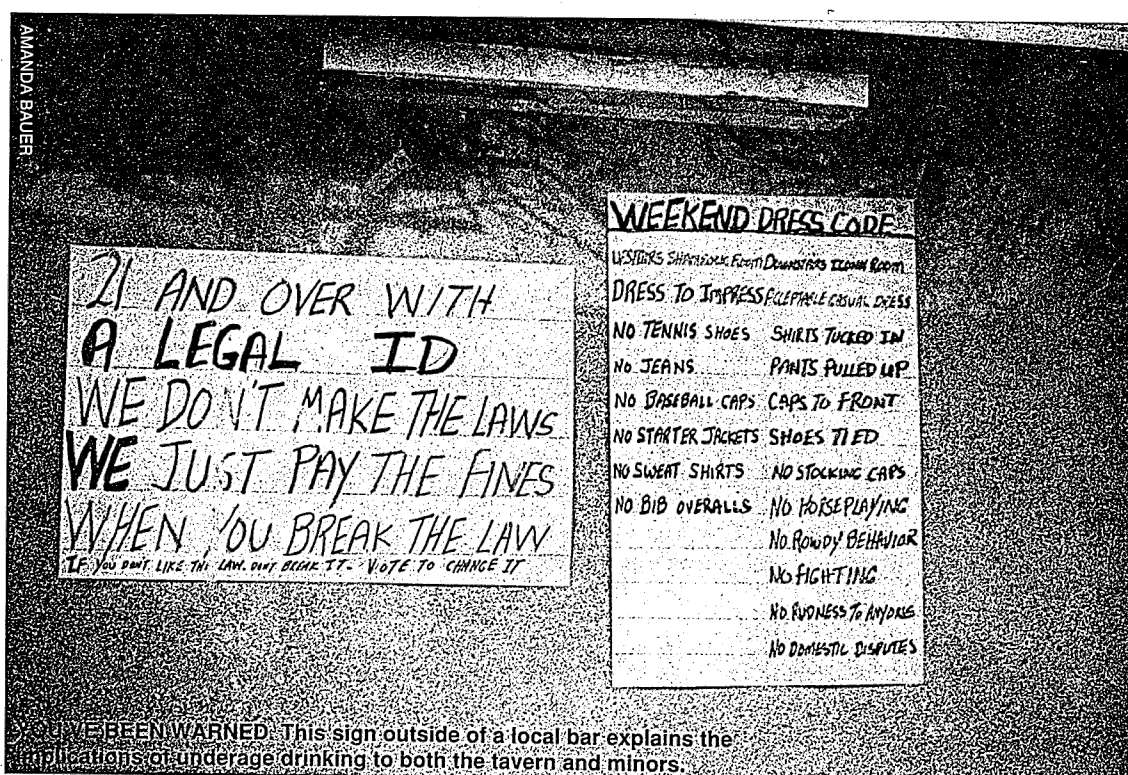 AMANDA BAUER
21 AND OVER WITH
A LEGAL ID
WE DON'T MAKE THE LAWS
WE JUST PAY THE FINES
WHEN YOU BREAK THE LAW
IF YOU DONT LIKE THE LAW. DONT BREAK IT. VOTE TO CHANGE IT
WEEKEND DRESS CODE
UPSTAIRS SHAMROCK ROOM DOWNSTAIRS ROOM
DRESS TO IMPRESS ACCEPTABLE CASUAL DRESS
NO TENNIS SHOES SHIRTS TUCKED IN
NO JEANS PANTS PULLED UP
NO BASEBALL CAPS CAPS TO FRONT
NO STARTER JACKETS SHOES TIED
NO SWEAT SHIRTS NO STOCKING CAPS
NO BIB OVERALLS NO HORSEPLAYING
NO ROWDY BEHAVIOR
NO FIGHTING
NO RUDNESS TO ANYONE
NO DOMESTIC DISPUTES
YOU'VE BEEN WARNED: This sign outside of a local bar explains the
implications of underage drinking to both the tavern and minors.